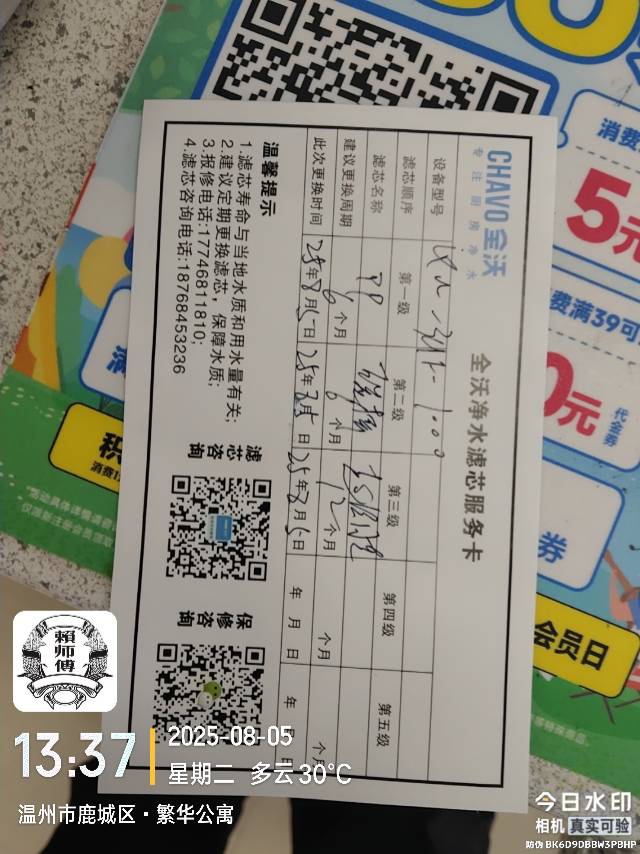 CHAVO 全沃
专注厨房净水
全沃净水滤芯服务卡
设备型号
滤芯顺序 第一级 第二级 第三级 第四级 第五级
滤芯名称 PP
建议更换周期 6个月 6个月 12个月 个月 个月
此次更换时间 25年8月5日 25年8月5日 25年8月5日 年 月 日 年
温馨提示
1.滤芯寿命与当地水质和用水量有关;
2.建议定期更换滤芯,保障水质;
3.报修电话:17746811810;
4.滤芯咨询电话:18768453236
滤芯咨询
保修咨询
消费
5元
费满39可
0元
代金券
券
会员日
满
积
消费
賴师傅
13:37
2025-08-05
星期二 多云 30°C
温州市鹿城区·繁华公寓
今日水印
相机 真实可验
防伪 BK6D9DBBW3PBHP